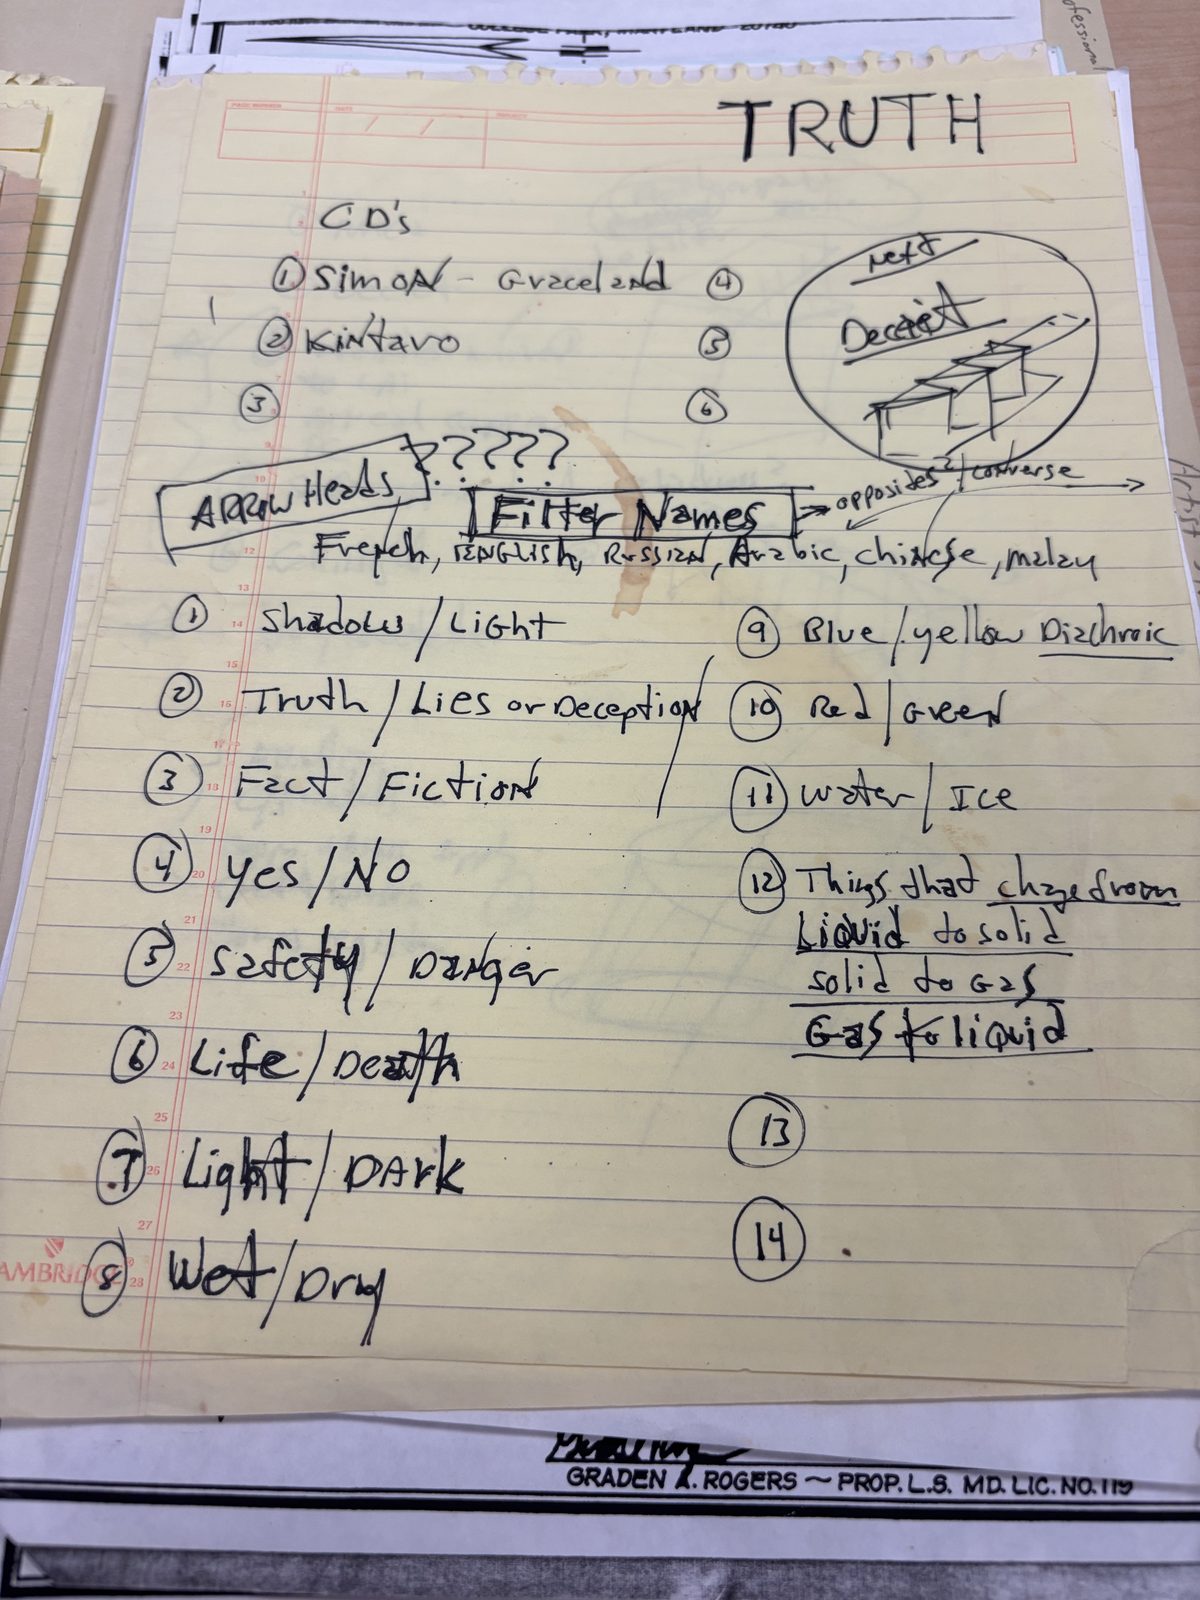 COLLEGE PARK, MARYLAND 20740
ofessional
TRUTH
CD's
① Simon - Graceland ④
② Kintaro ⑤
③ ⑥
next
Deceit
ARROW Heads ?????
Filter Names → opposides²/converse
French, ENGLISH, RUSSIAN, Arabic, chinese, malay
① Shadow / Light
② Truth / Lies or Deception
③ Fact / Fiction
④ Yes / No
⑤ Safety / Danger
⑥ Life / Death
⑦ Light / DArk
⑧ Wet / Dry
⑨ Blue / yellow Diachroic
⑩ Red / Green
⑪ Water / Ice
⑫ Things that change from
Liquid to solid
solid to Gas
Gas to liquid
⑬
⑭
Artist
GRADEN A. ROGERS ~ PROP. L.S. MD. LIC. NO. 119